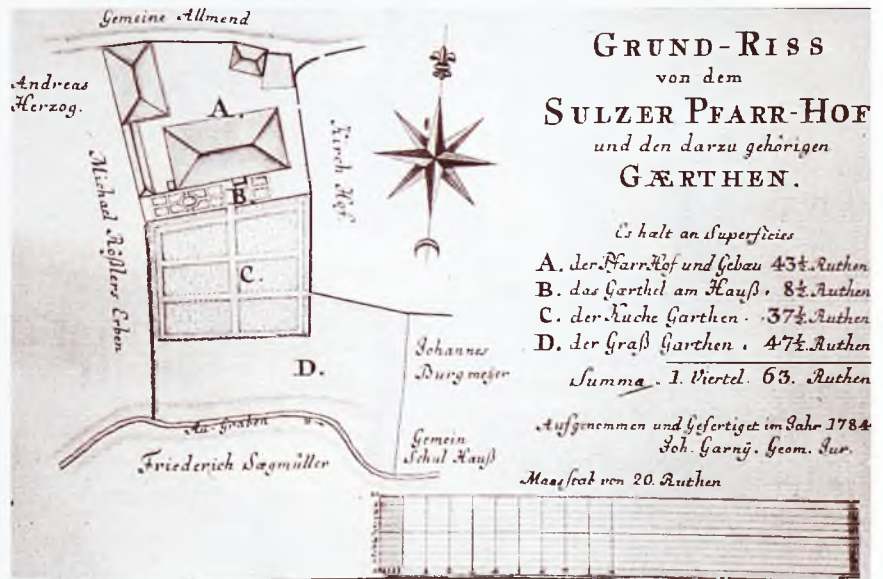 Gemeine Allmend
Andreas
Herzog.
Michael Rößlers Erben
Kirch Hof
A.
B.
C.
D.
Johannes
Burgmeÿer
Au-Graben
Friederich Sægmüller
Gemein
Schul Hauß
GRUND-RISS
von dem
SULZER PFARR-HOF
und den darzu gehörigen
GÆRTHEN.
Es halt an Superficies
A. der Pfarr Hof und Gebäu 43½ Ruthen
B. das Gærthel am Hauß. 8½ Ruthen
C. der Kuche Garthen. 37½ Ruthen
D. der Graß Garthen. 47½ Ruthen
Summa. 1. Viertel. 63. Ruthen
Aufgenommen und Gefertiget im Jahr 1784
Joh. Garnÿ. Geom. Jur.
Maasstab von 20. Ruthen